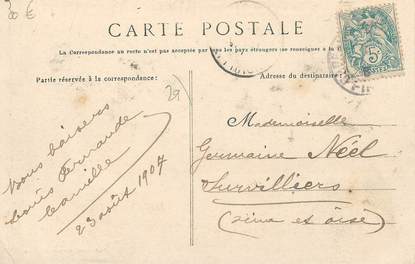 30 €
CARTE POSTALE
La Correspondance au recto n'est pas acceptée par tous les pays étrangers (se renseigner à la
Partie réservée à la correspondance:
Adresse du destinataire:
29
5
Mademoiselle
Germaine Néel
Survilliers
(Seine et oise)
Bons baisers
Louis Fernande
Camille
23 août 1907